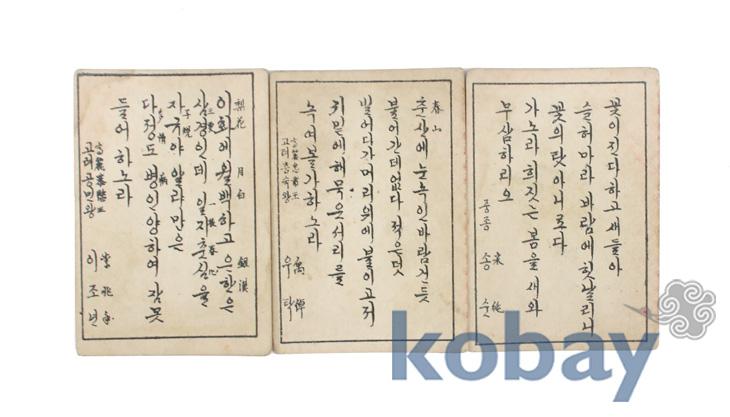 꽃이진다하고 새들아
슬허마라 바람에 흣날리니
꽃의 탓 아니로다
가노라 희짓는 봄을 새와
무삼하리오
중종 송순 宋純
春山
춘산에 눈녹인 바람 건듯
불어간데없다 저은덧
빌어다가 머리우에 불이고저
귀밑에 해묵은 서리를
녹여볼가 하노라
고려충숙왕 우탁 禹倬
梨花 月白 銀漢
이화에 월백하고 은한은
三更 一枝春心
삼경인데 일지춘심을
자규야 알랴만은
多情 病
다정도 병인양하여 잠못
들어 하노라
고려공민왕 이조년 李兆年
kobay